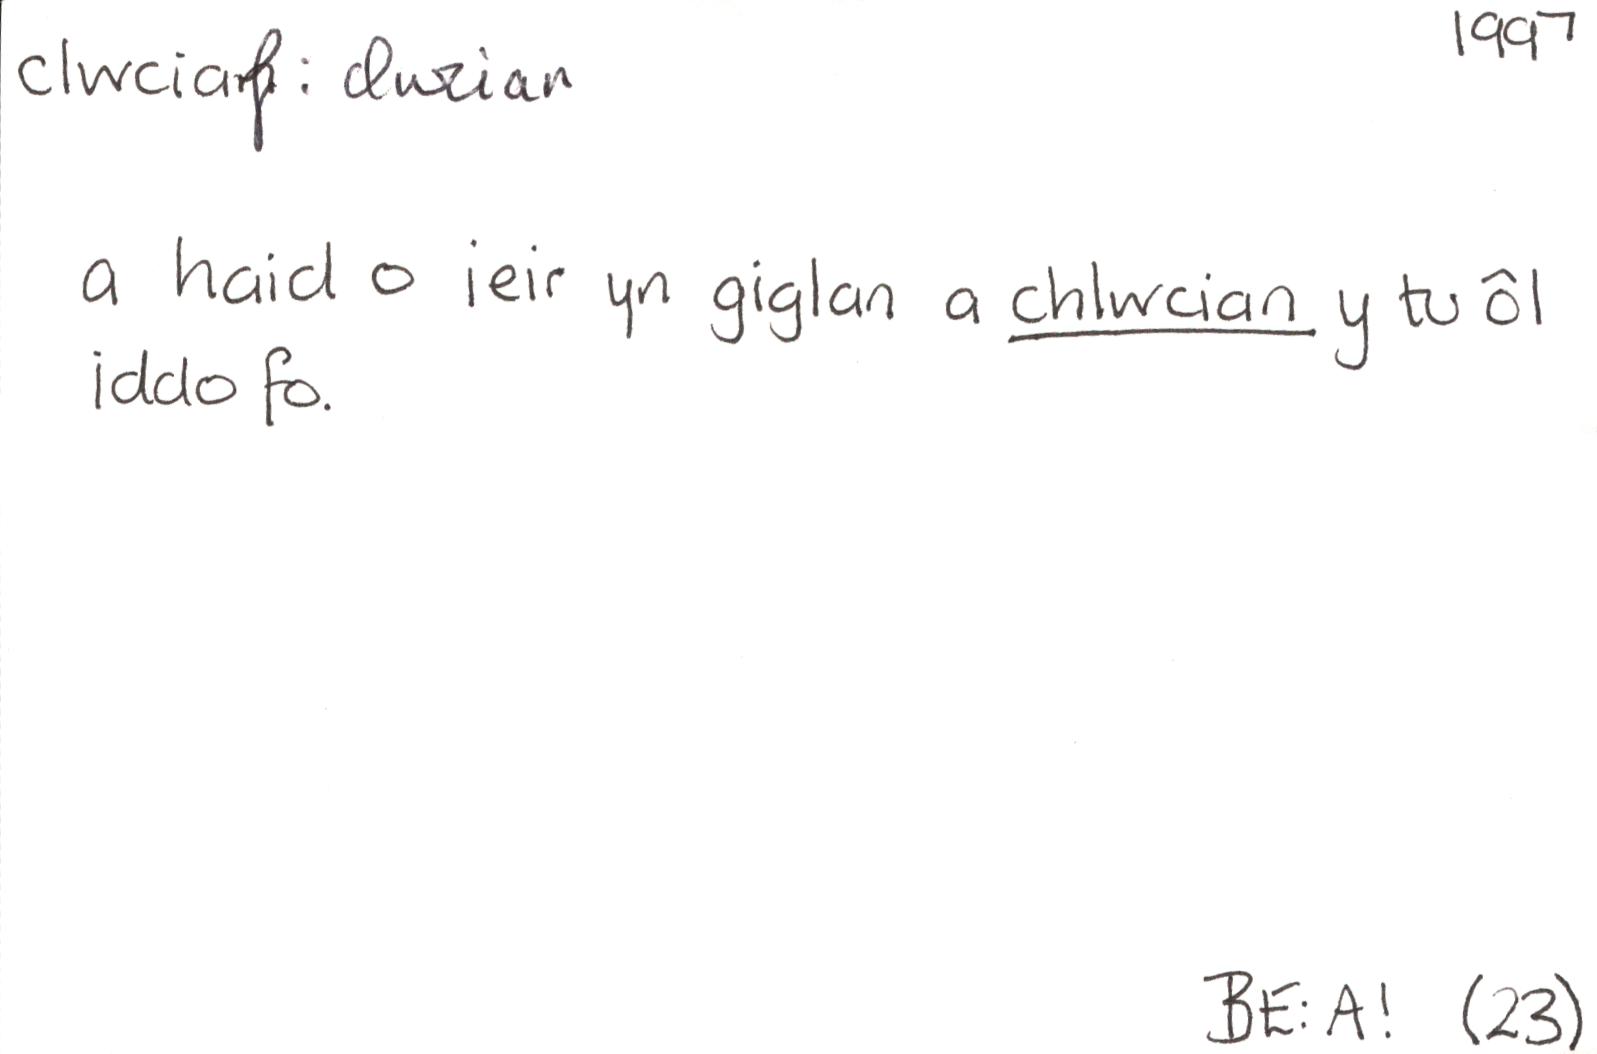 1997
clwciaf: clwcian
a haid o ieir yn giglan a chlwcian y tu ôl
iddo fo.
BE: A! (23)